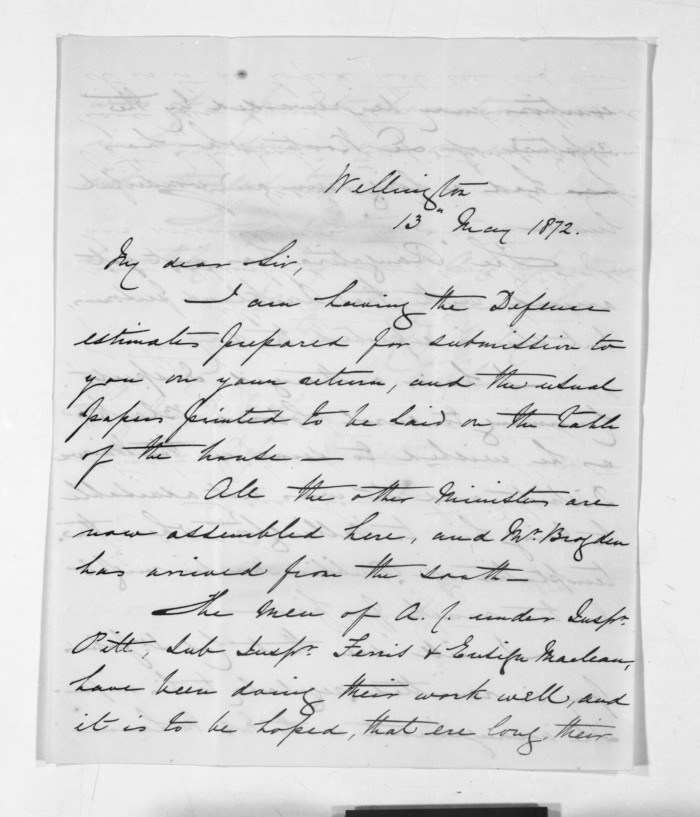 Wellington
13th May 1872.
My dear Sir,
I am having the Defence
estimates prepared for submission to
you on your return, and the usual
papers printed to be laid on the table
of the house —
All the other Ministers are
now assembled here, and Mr. Brogden
has arrived from the south —
The men of A. C. under Inspr.
Pitt, Sub Inspr. Ferris & Ensign Maclean,
have been doing their work well, and
it is to be hoped, that ere long, their